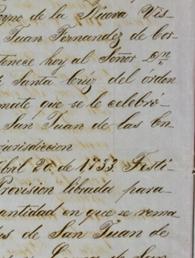 Reyno de la Nueva Vis-
Juan Fernandez de Cor-
tenece hoy al Señor Dn
Santa Cruz del órden
mite que se le celebro
San Juan de las Cn
jurisdiccion
Abril 20 de 1733. Testi-
Provision librada para
antidad en que se rema
des de San Juan de